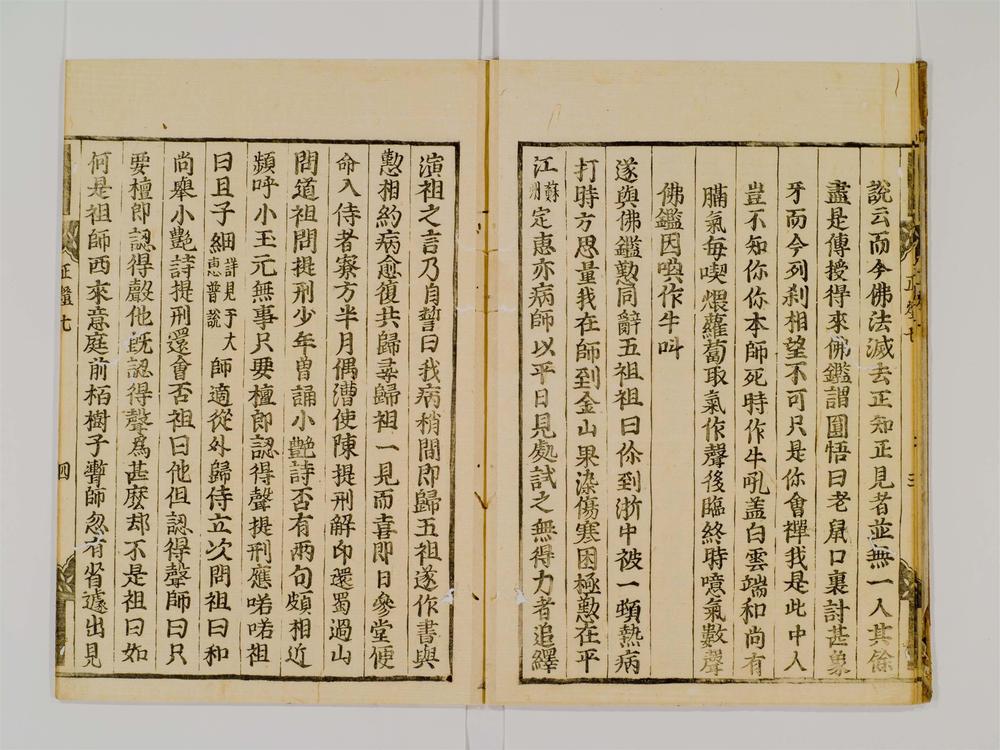 說云而今佛法滅去正知正見者並無一人其餘
盡是傳授得來佛鑑謂圓悟曰老鼠口裏討甚象
牙而今列刹相望不可只是你會禪我是此中人
豈不知你你本師死時作牛吼盖白雲端和尚有
膈氣每喫煨蘿蔔取氣作聲後臨終時噫氣數聲
佛鑑因喚作牛吽
遂與佛鑑懃同辭五祖祖曰你到浙中被一頓熱病
打時方思量我在師到金山果染傷寒困極懃在平
江蘇州定惠亦病師以平日見處試之無得力者追繹
演祖之言乃自誓曰我病稍間即歸五祖遂作書與
懃相約病愈復共歸尋歸祖一見而喜即日叅堂便
命入侍者寮方半月偶漕使陳提刑解印還蜀過山
問道祖問提刑少年曾誦小艶詩否有兩句頗相近
頻呼小玉元無事只要檀郎認得聲提刑應喏喏祖
曰且子細詳見于大惠普說師適從外歸侍立次問祖曰和
尚舉小艶詩提刑還會否祖曰他但認得聲師曰只
要檀郎認得聲他旣認得聲爲甚麽却不是祖曰如
何是祖師西來意庭前栢樹子聻師忽有省遽出見
正鑑七
三
正鑑七
四